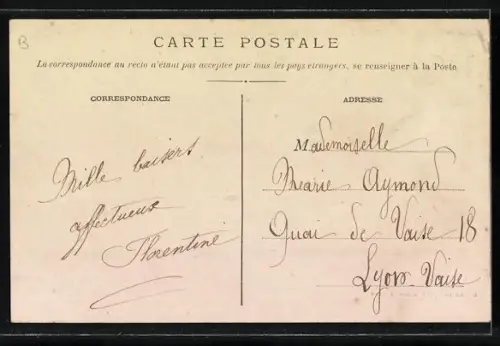 B
CARTE POSTALE
La correspondance au recto n'étant pas acceptée par tous les pays étrangers, se renseigner à la Poste
CORRESPONDANCE
ADRESSE
Mille baisers
affectueux
Florentine
Mademoiselle
Marie Aymond
Quai de Vaise 18
Lyon-Vaise